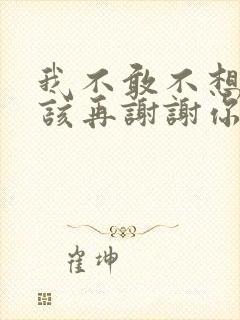 我不敢不想
该再謝謝你
崔坤